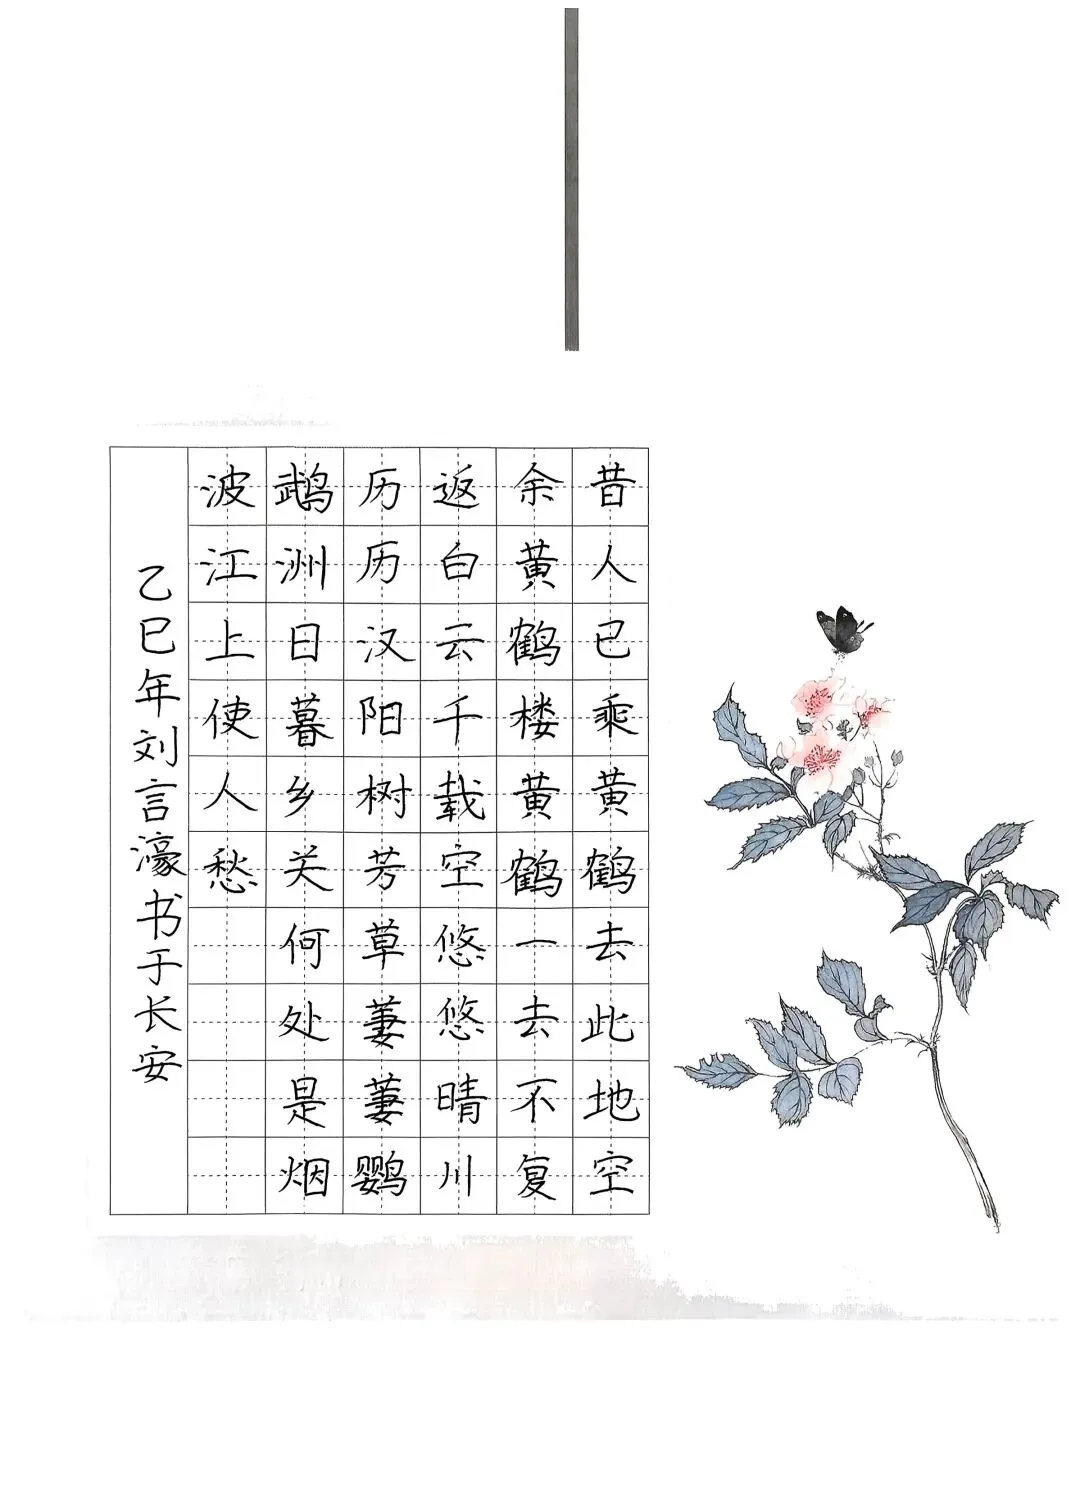 昔人已乘黄鹤去此地空
余黄鹤楼黄鹤一去不复
返白云千载空悠悠晴川
历历汉阳树芳草萋萋鹦
鹉洲日暮乡关何处是烟
波江上使人愁
乙巳年刘言濠书于长安